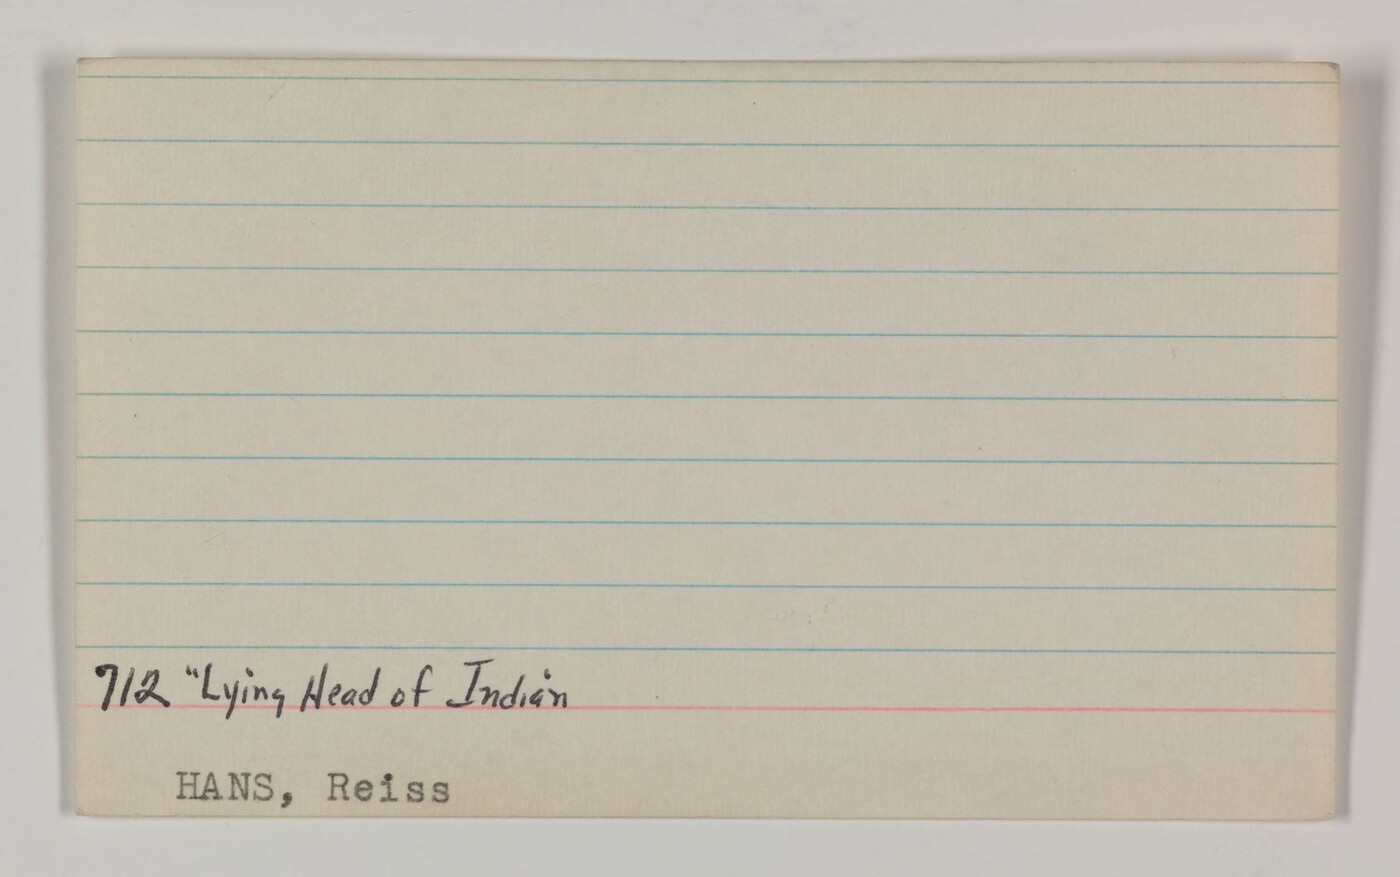 712 "Lying Head of Indian
HANS, Reiss